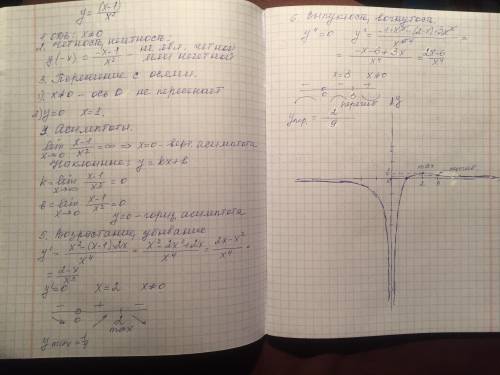 y = (x-1)/x²
1. ОДЗ: x≠0
2. Чётность, нечётность:
y(-x) = (-x-1)/x² - не явл. чётной
нечётной
3. Пересечение с осями.
1) x≠0 - ось 0 не пересекает
2) y=0 x=1.
4. Асимптоты.
lim x→0 (x-1)/x² = ∞ ⇒ x=0 - верт. асимптота
Наклонные: y = kx+b
k = lim x→∞ (x-1)/x² = 0
b = lim x→∞ (x-1)/x² = 0
y=0 - гориз. асимптота
5. Возрастание, убывание
y' = (x²-(x-1)·2x)/x⁴ = (x²-2x²+2x)/x⁴ = (2x-x²)/x⁴ =
= (2-x)/x³
y'=0 x=2 x≠0
- + -
0 2
max
y max = 1/4
6. Выпуклость, вогнутость.
y''=0
= (-x-6+3x)/x⁴ = (2x-6)/x⁴
x=3 x≠0
- - +
0 3
перегиб
y пер. = 2/9
y
max перегиб
2 3